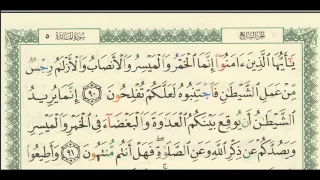 الجزء السابع
سورة المائدة ٥
يَٰٓأَيُّهَا ٱلَّذِينَ ءَامَنُوٓا۟ إِنَّمَا ٱلْخَمْرُ وَٱلْمَيْسِرُ وَٱلْأَنصَابُ وَٱلْأَزْلَٰمُ رِجْسٌ
مِّنْ عَمَلِ ٱلشَّيْطَٰنِ فَٱجْتَنِبُوهُ لَعَلَّكُمْ تُفْلِحُونَ ٩٠ إِنَّمَا يُرِيدُ
ٱلشَّيْطَٰنُ أَن يُوقِعَ بَيْنَكُمُ ٱلْعَدَٰوَةَ وَٱلْبَغْضَآءَ فِى ٱلْخَمْرِ وَٱلْمَيْسِرِ
وَيَصُدَّكُمْ عَن ذِكْرِ ٱللَّهِ وَعَنِ ٱلصَّلَوٰةِ ۖ فَهَلْ أَنتُم مُّنتَهُونَ ٩١ وَأَطِيعُوا۟